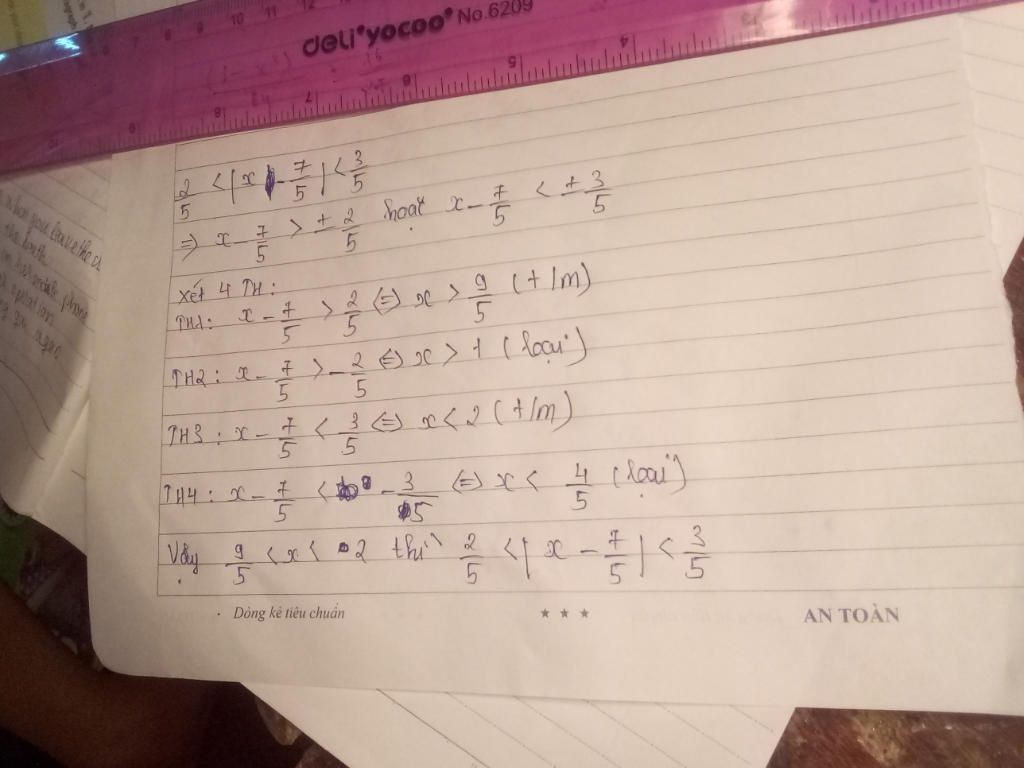 deli yocoo No.6209
2/5 < |x - 7/5| < 3/5
⇒ x - 7/5 > ± 2/5 hoặc x - 7/5 < ± 3/5
Xét 4 TH:
TH1: x - 7/5 > 2/5 ⇔ x > 9/5 (t/m)
TH2: x - 7/5 > - 2/5 ⇔ x > 1 (loại)
TH3: x - 7/5 < 3/5 ⇔ x < 2 (t/m)
TH4: x - 7/5 < - 3/5 ⇔ x < 4/5 (loại)
Vậy 9/5 < x < 2 thì 2/5 < |x - 7/5| < 3/5
· Dòng kẻ tiêu chuẩn ★ ★ ★ AN TOÀN